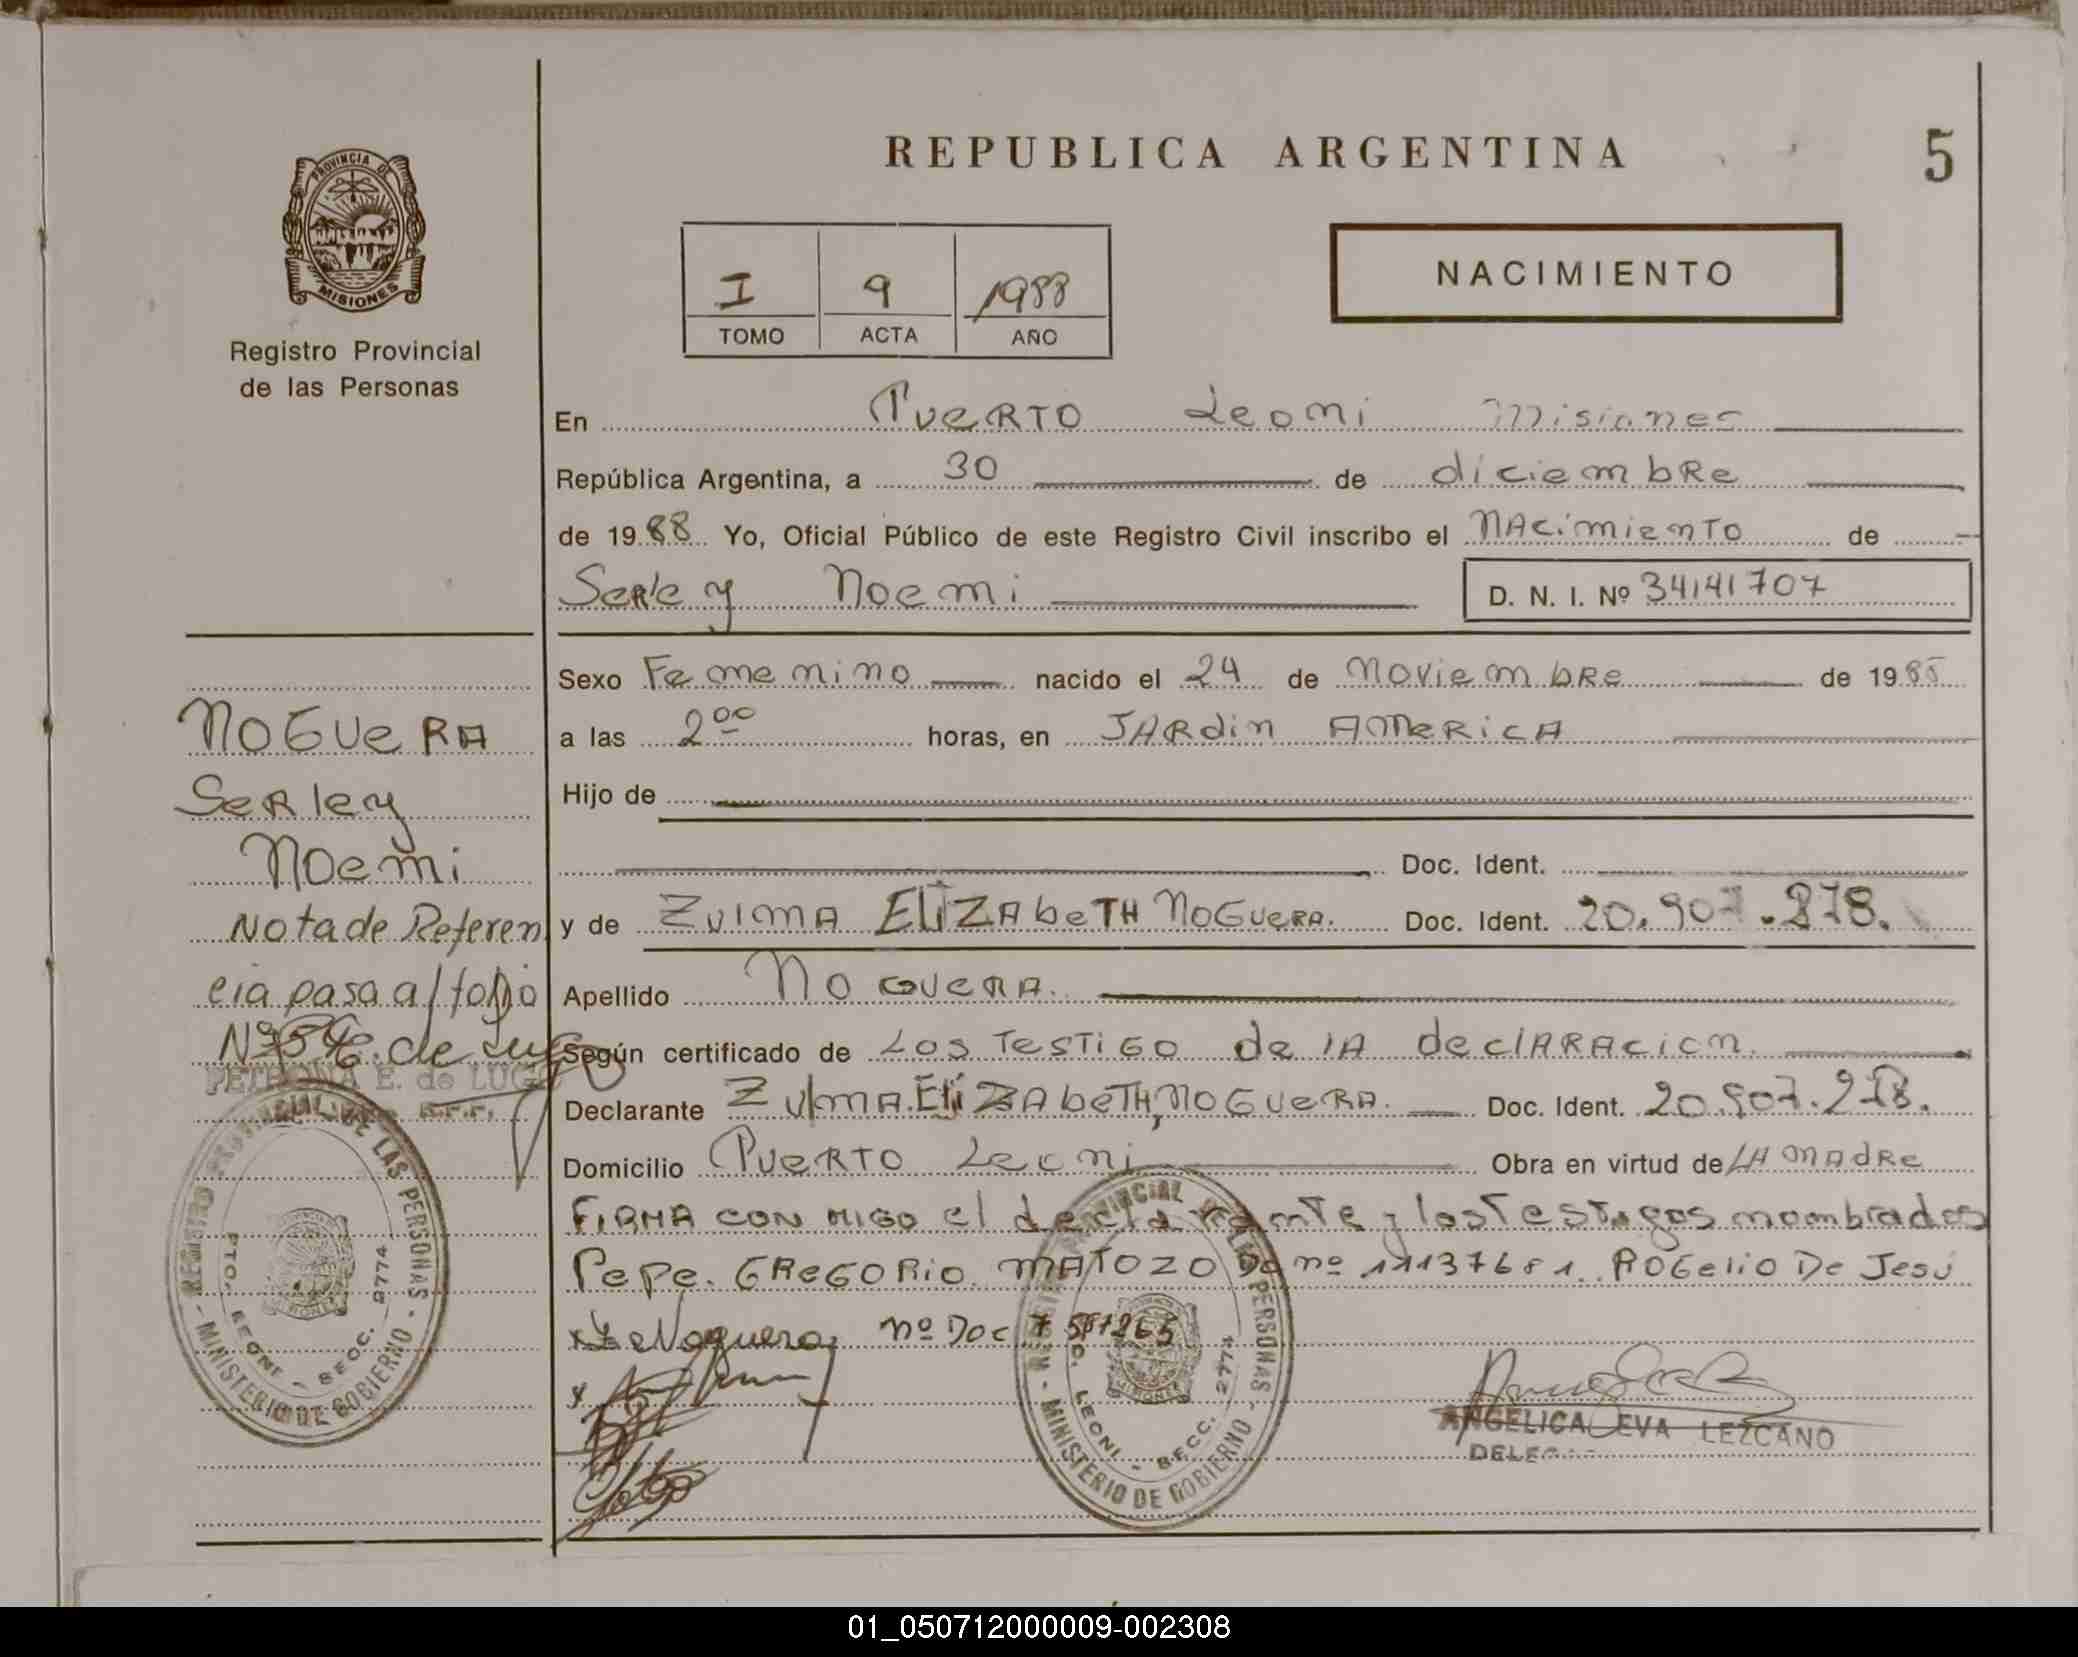 REPUBLICA ARGENTINA
5
PROVINCIA DE
MISIONES
Registro Provincial
de las Personas
I 9 1988
TOMO ACTA AÑO
NACIMIENTO
En Puerto Leoni Misiones
República Argentina, a 30 de diciembre
de 1988 Yo, Oficial Público de este Registro Civil inscribo el Nacimiento de
Serley Noemi D. N. I. Nº 34141707
Sexo Femenino nacido el 24 de Noviembre de 1985
a las 2 00 horas, en JARdin AMERICA
Hijo de
Doc. Ident.
y de Zulma ELIZAbeTH NOGUERA. Doc. Ident. 20.907.278.
Apellido NOGUERA.
Según certificado de Los Testigo de lA declARAcion
Declarante ZulmA ELIZAbeTH, NOGUERA. Doc. Ident. 20.907.278.
Domicilio Puerto Leoni Obra en virtud de LA MAdRe
FIRMA CON MIGO el declarante y los Testigos nombrados
Pepe. GREGORIO MATOZO Do nº 11137681. ROGelio De Jesu
x Z e Noguera nº Doc 7 587265
x
ANGELICA EVA LEZCANO
NOGUERA
Serley
Noemi
Nota de Referen
cia pasa al folio
Nº 54 de
PETRONA E. de LUGO
REGISTRO PROVINCIAL DE LAS PERSONAS - MINISTERIO DE GOBIERNO -
PTO. LEONI - SECC. 2774
MISIONES
REGISTRO PROVINCIAL DE LAS PERSONAS - MINISTERIO DE GOBIERNO -
PTO. LEONI - SECC. 2774
MISIONES
01_050712000009-002308